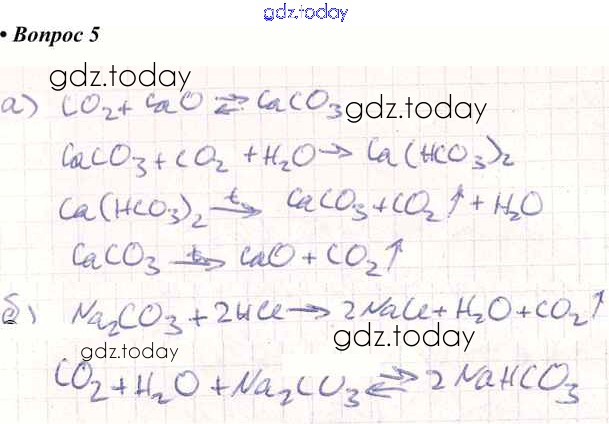 gdz.today
• Вопрос 5
gdz.today
а) CO2 + CaO ⇄ CaCO3 gdz.today
CaCO3 + CO2 + H2O → Ca(HCO3)2
Ca(HCO3)2 t→ CaCO3 + CO2↑ + H2O
CaCO3 t→ CaO + CO2↑
б) Na2CO3 + 2HCl → 2NaCl + H2O + CO2↑
gdz.today gdz.today
CO2 + H2O + Na2CO3 ⇄ 2NaHCO3